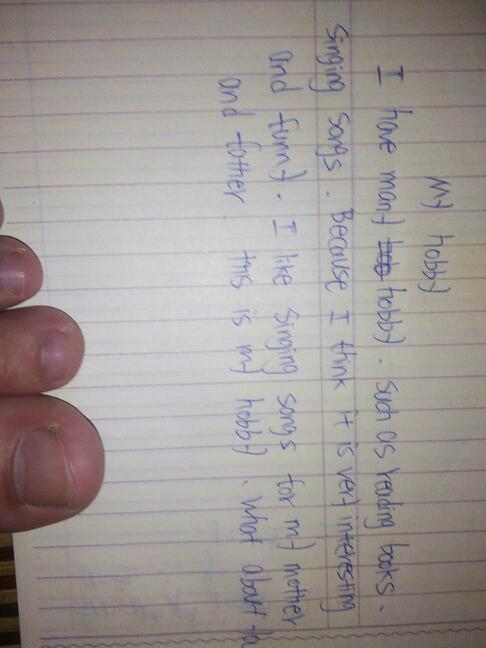 My hobby
I have many hobby. Such as reading books.
Singing songs. Because I think it is very interesting
and funny. I like singing songs for my mother
and father. this is my hobby. What about